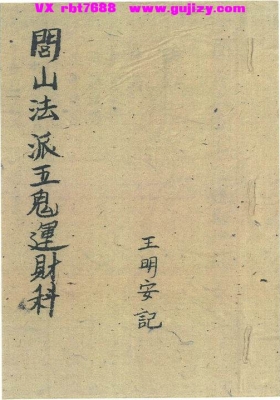 VX rbt7688 www.gujizy.com
閭山法派五鬼運財科
王明安記